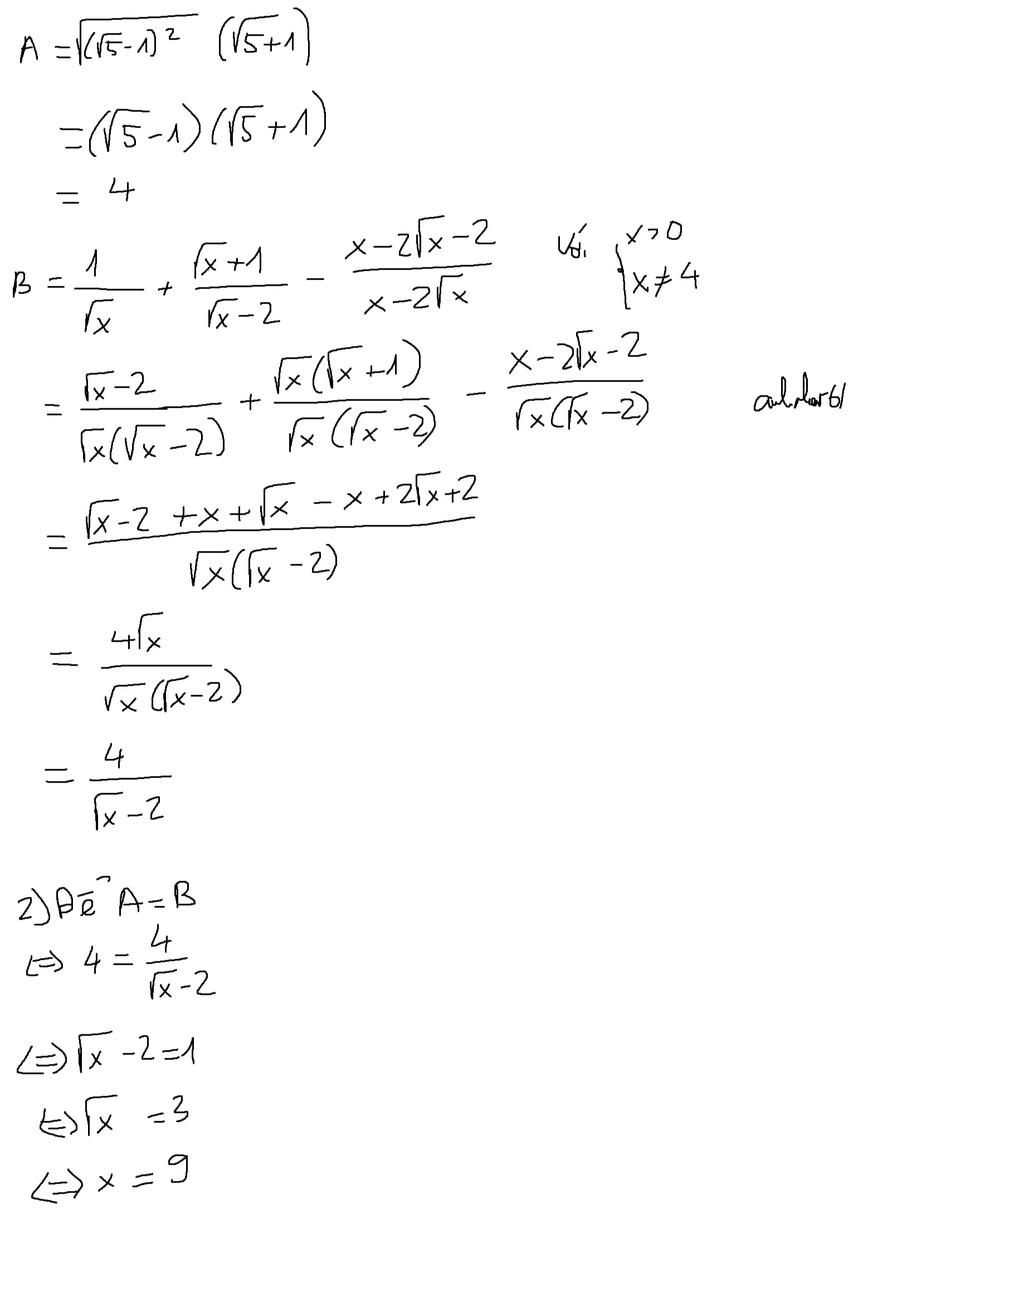 A = √((√5-1)²) (√5+1)
= (√5-1)(√5+1)
= 4
B = 1/√x + (√x+1)/(√x-2) - (x-2√x-2)/(x-2√x) Với { x>0 x≠4
= (√x-2)/(√x(√x-2)) + (√x(√x+1))/(√x(√x-2)) - (x-2√x-2)/(√x(√x-2))
= (√x-2+x+√x-x+2√x+2)/(√x(√x-2))
= 4√x/(√x(√x-2))
= 4/(√x-2)
2) Để A=B
⇔ 4 = 4/(√x-2)
⇔ √x-2=1
⇔ √x = 3
⇔ x = 9